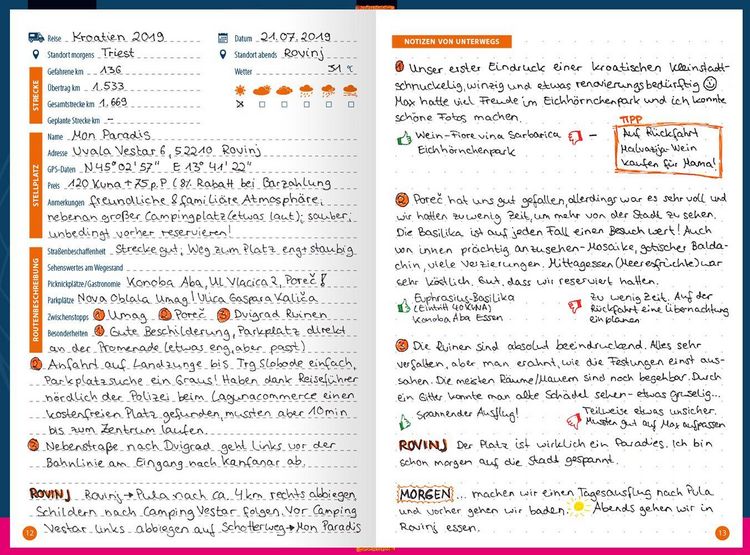 Reise Kroatien 2019
Datum 21.07.2019
Standort morgens Triest
Standort abends Rovinj
Gefahrene km 136
Wetter 31 °C
Übertrag km 1.533
Gesamtstrecke km 1.669
Geplante Strecke km
STRECKE
Name Mon Paradis
Adresse Uvala Vestar 6, 52210 Rovinj
GPS-Daten N 45° 02' 57" E 13° 41' 22"
Preis 120 Kuna + 75 p.P (8% Rabatt bei Barzahlung
Anmerkungen freundliche & familiäre Atmosphäre,
nebenan großer Campingplatz (etwas laut); sauber,
unbedingt vorher reservieren!
STELLPLATZ
Straßenbeschaffenheit Strecke gut, Weg zum Platz eng + staubig
Sehenswertes am Wegesrand
Picknickplätze/Gastronomie Konoba Aba, Ul Vlacica 2, Poreč!
Parkplätze Nova Oblala Umag! Ulica Gaspara Kaliča
Zwischenstopps 1 Umag 2 Poreč 3 Dvigrad Ruinen
Besonderheiten 1 Gute Beschilderung, Parkplatz direkt
an der Promenade (etwas eng, aber passt)
2 Anfahrt auf Landzunge bis Trg Slobode einfach,
Parkplatzsuche ein Graus! Haben dank Reiseführer
nördlich der Polizei beim Lagunacommerce einen
kostenfreien Platz gefunden, mussten aber 10min
bis zum Zentrum laufen.
3 Nebenstraße nach Dvigrad geht links vor der
Bahnlinie am Eingang nach Kanfanar ab.
ROUTENBESCHREIBUNG
ROVINJ Rovinj → Pula nach ca. 4 km rechts abbiegen,
Schildern nach Camping Vestar folgen. Vor Camping
Vestar links abbiegen auf Schotterweg → Mon Paradis
12
NOTIZEN VON UNTERWEGS
1 Unser erster Eindruck einer kroatischen Kleinstadt-
schnuckelig, winzig und etwas renovierungsbedürftig
Max hatte viel Freude im Eichhörnchenpark und ich konnte
schöne Fotos machen.
Wein-Fiore vina Sarbarica
Eichhörnchenpark
–
TIPP
Auf Rückfahrt
Malvazija-Wein
kaufen für Mama!
2 Poreč hat uns gut gefallen, allerdings war es sehr voll und
wir hatten zu wenig Zeit, um mehr von der Stadt zu sehen.
Die Basilika ist auf jeden Fall einen Besuch wert! Auch
von innen prächtig anzusehen - Mosaike, gotischer Balda-
chin, viele Verzierungen. Mittagessen (Meeresfrüchte) war
sehr köstlich. Gut, dass wir reserviert hatten.
Euphrasius-Basilika
(Eintritt 40 KUNA)
Konoba Aba Essen
Zu wenig Zeit. Auf der
Rückfahrt eine Übernachtung
einplanen
3 Die Ruinen sind absolut beeindruckend. Alles sehr
verfallen, aber man erahnt, wie die Festungen einst aus-
sahen. Die meisten Räume/Mauern sind noch begehbar. Durch
ein Gitter konnte man alte Schädel sehen - etwas gruselig...
Spannender Ausflug!
Teilweise etwas unsicher.
Mussten gut auf Max aufpassen
ROVINJ Der Platz ist wirklich ein Paradies. Ich bin
schon morgen auf die Stadt gespannt.
MORGEN ... machen wir einen Tagesausflug nach Pula
und vorher gehen wir baden. Abends gehen wir in
Rovinj essen.
13